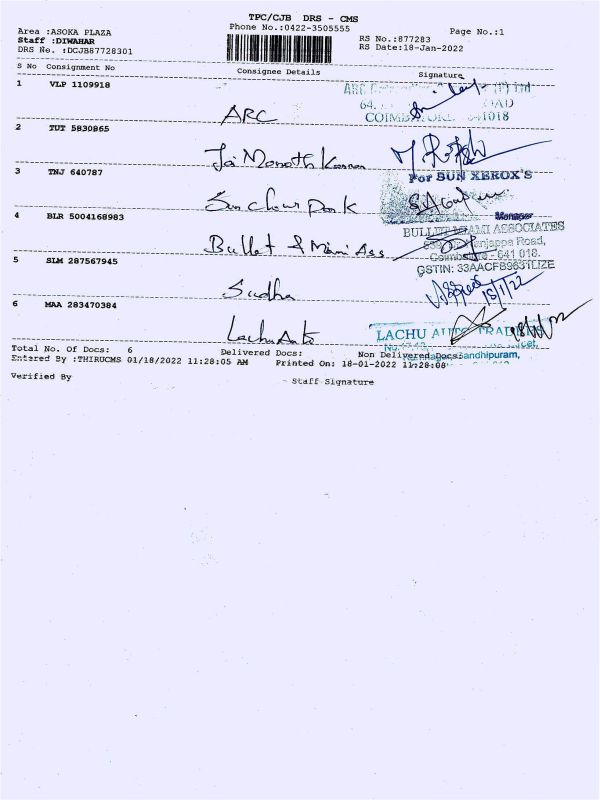 TPC/CJB DRS - CMS
Phone No.:0422-3505555
Page No.:1
Area :ASOKA PLAZA
Staff :DIWAHAR
DRS No. :DCJB87728301
RS No.:877283
RS Date:18-Jan-2022
S No Consignment No Consignee Details Signature
1 VLP 1109918
ARC
ARC (P) Ltd
64, ROAD
COIMBATORE 641018
2 TUT 5830865
Jai Manoth Kannan
3 TNJ 640787
For SUN XEROX'S
4 BLR 5004168983
Manager
BULLET MAMI ASSOCIATES
Bullet & Mami Ass
Nanjappa Road,
Coimbatore - 641 018.
5 SLM 287567945
GSTIN: 33AACFB9631L1ZE
Sudha
18/1/22
6 MAA 283470384
Lachu Auto
LACHU AUTO TRADERS
Total No. Of Docs: 6 Delivered Docs: Non Delivered Docs:
Gandhipuram,
Entered By :THIRUCMS 01/18/2022 11:28:05 AM Printed On: 18-01-2022 11:28:08
Verified By
- Staff Signature